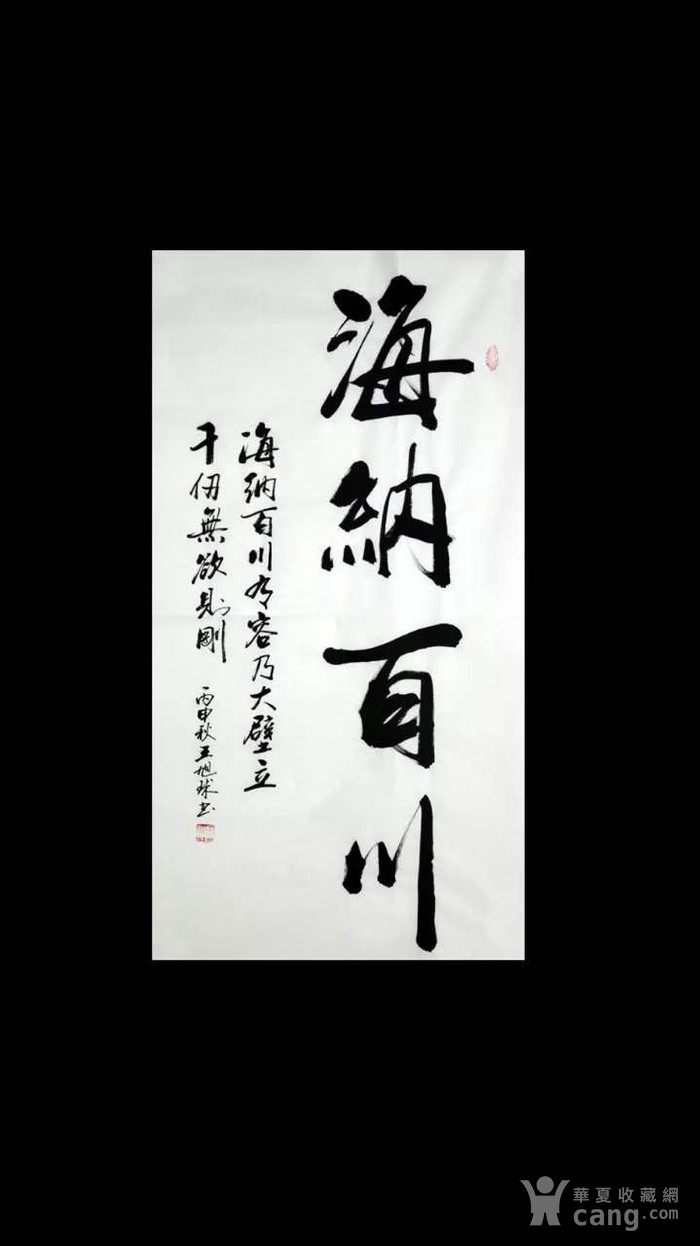 海納百川
海納百川有容乃大壁立
千仞無欲則剛
丙申秋王旭球书
華夏收藏網
cang.com